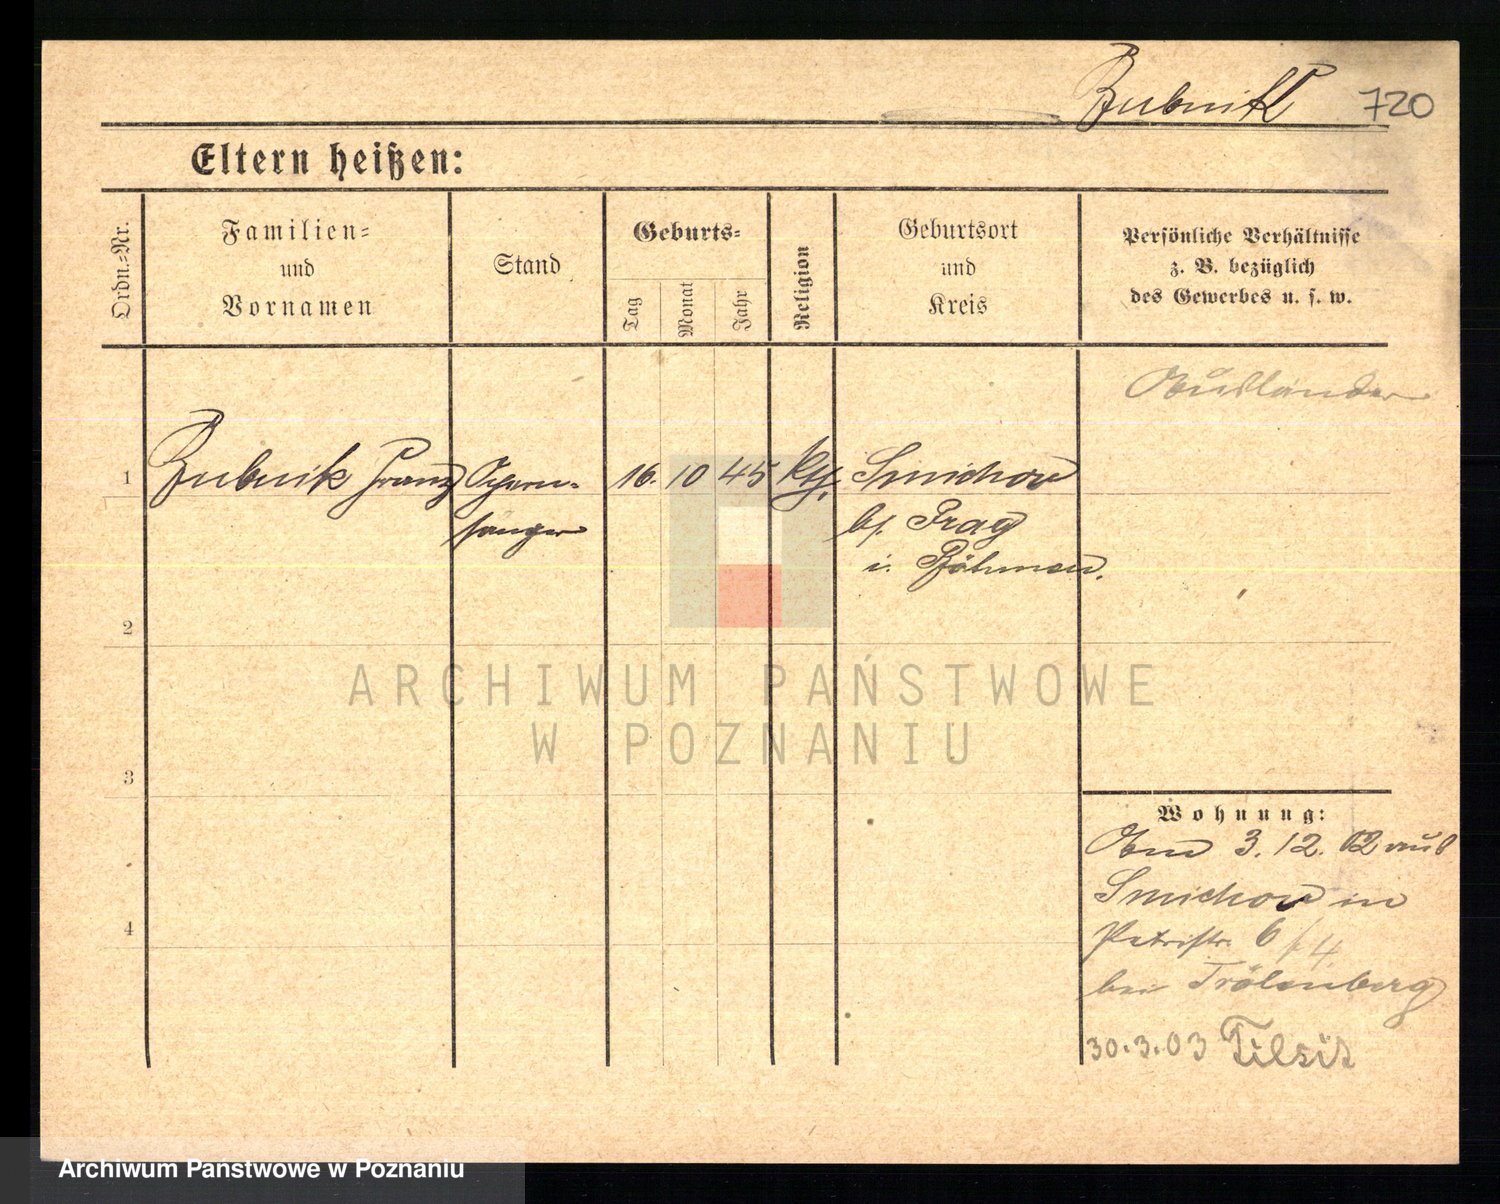 Zubnik 720
Eltern heißen:
Ordn.-Nr.
Familien-
und
Vornamen
Stand
Geburts-
Tag
Monat
Jahr
Religion
Geburtsort
und
Kreis
Persönliche Verhältnisse
z. B. bezüglich
des Gewerbes u. s. w.
Ausländer
1 Zubnik Franz Opern- 16. 10 45 kth. Smichow
sänger bei Prag
i. Böhmen.
2
ARCHIWUM PAŃSTWOWE
W POZNANIU
3
Wohnung:
Am 3. 12. 02 aus
Smichow in
4 Petristr. 6 / 4.
bei
30.3.03 Tilsit
Archiwum Państwowe w Poznaniu